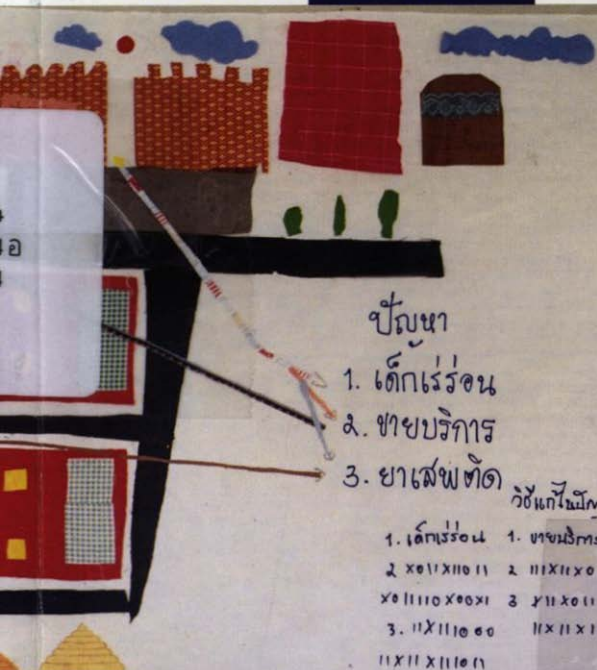 ปัญหา
1. เด็กเร่ร่อน
2. ขายบริการ
3. ยาเสพติด
วิธีแก้ไขปัญ
1. เด็กเร่ร่อน
2 X011X11011
X011110X00X1
3. 11X111000
11X11X111011
1. ขายบริการ
2 111X11X0
3 X11X011
11X11X1